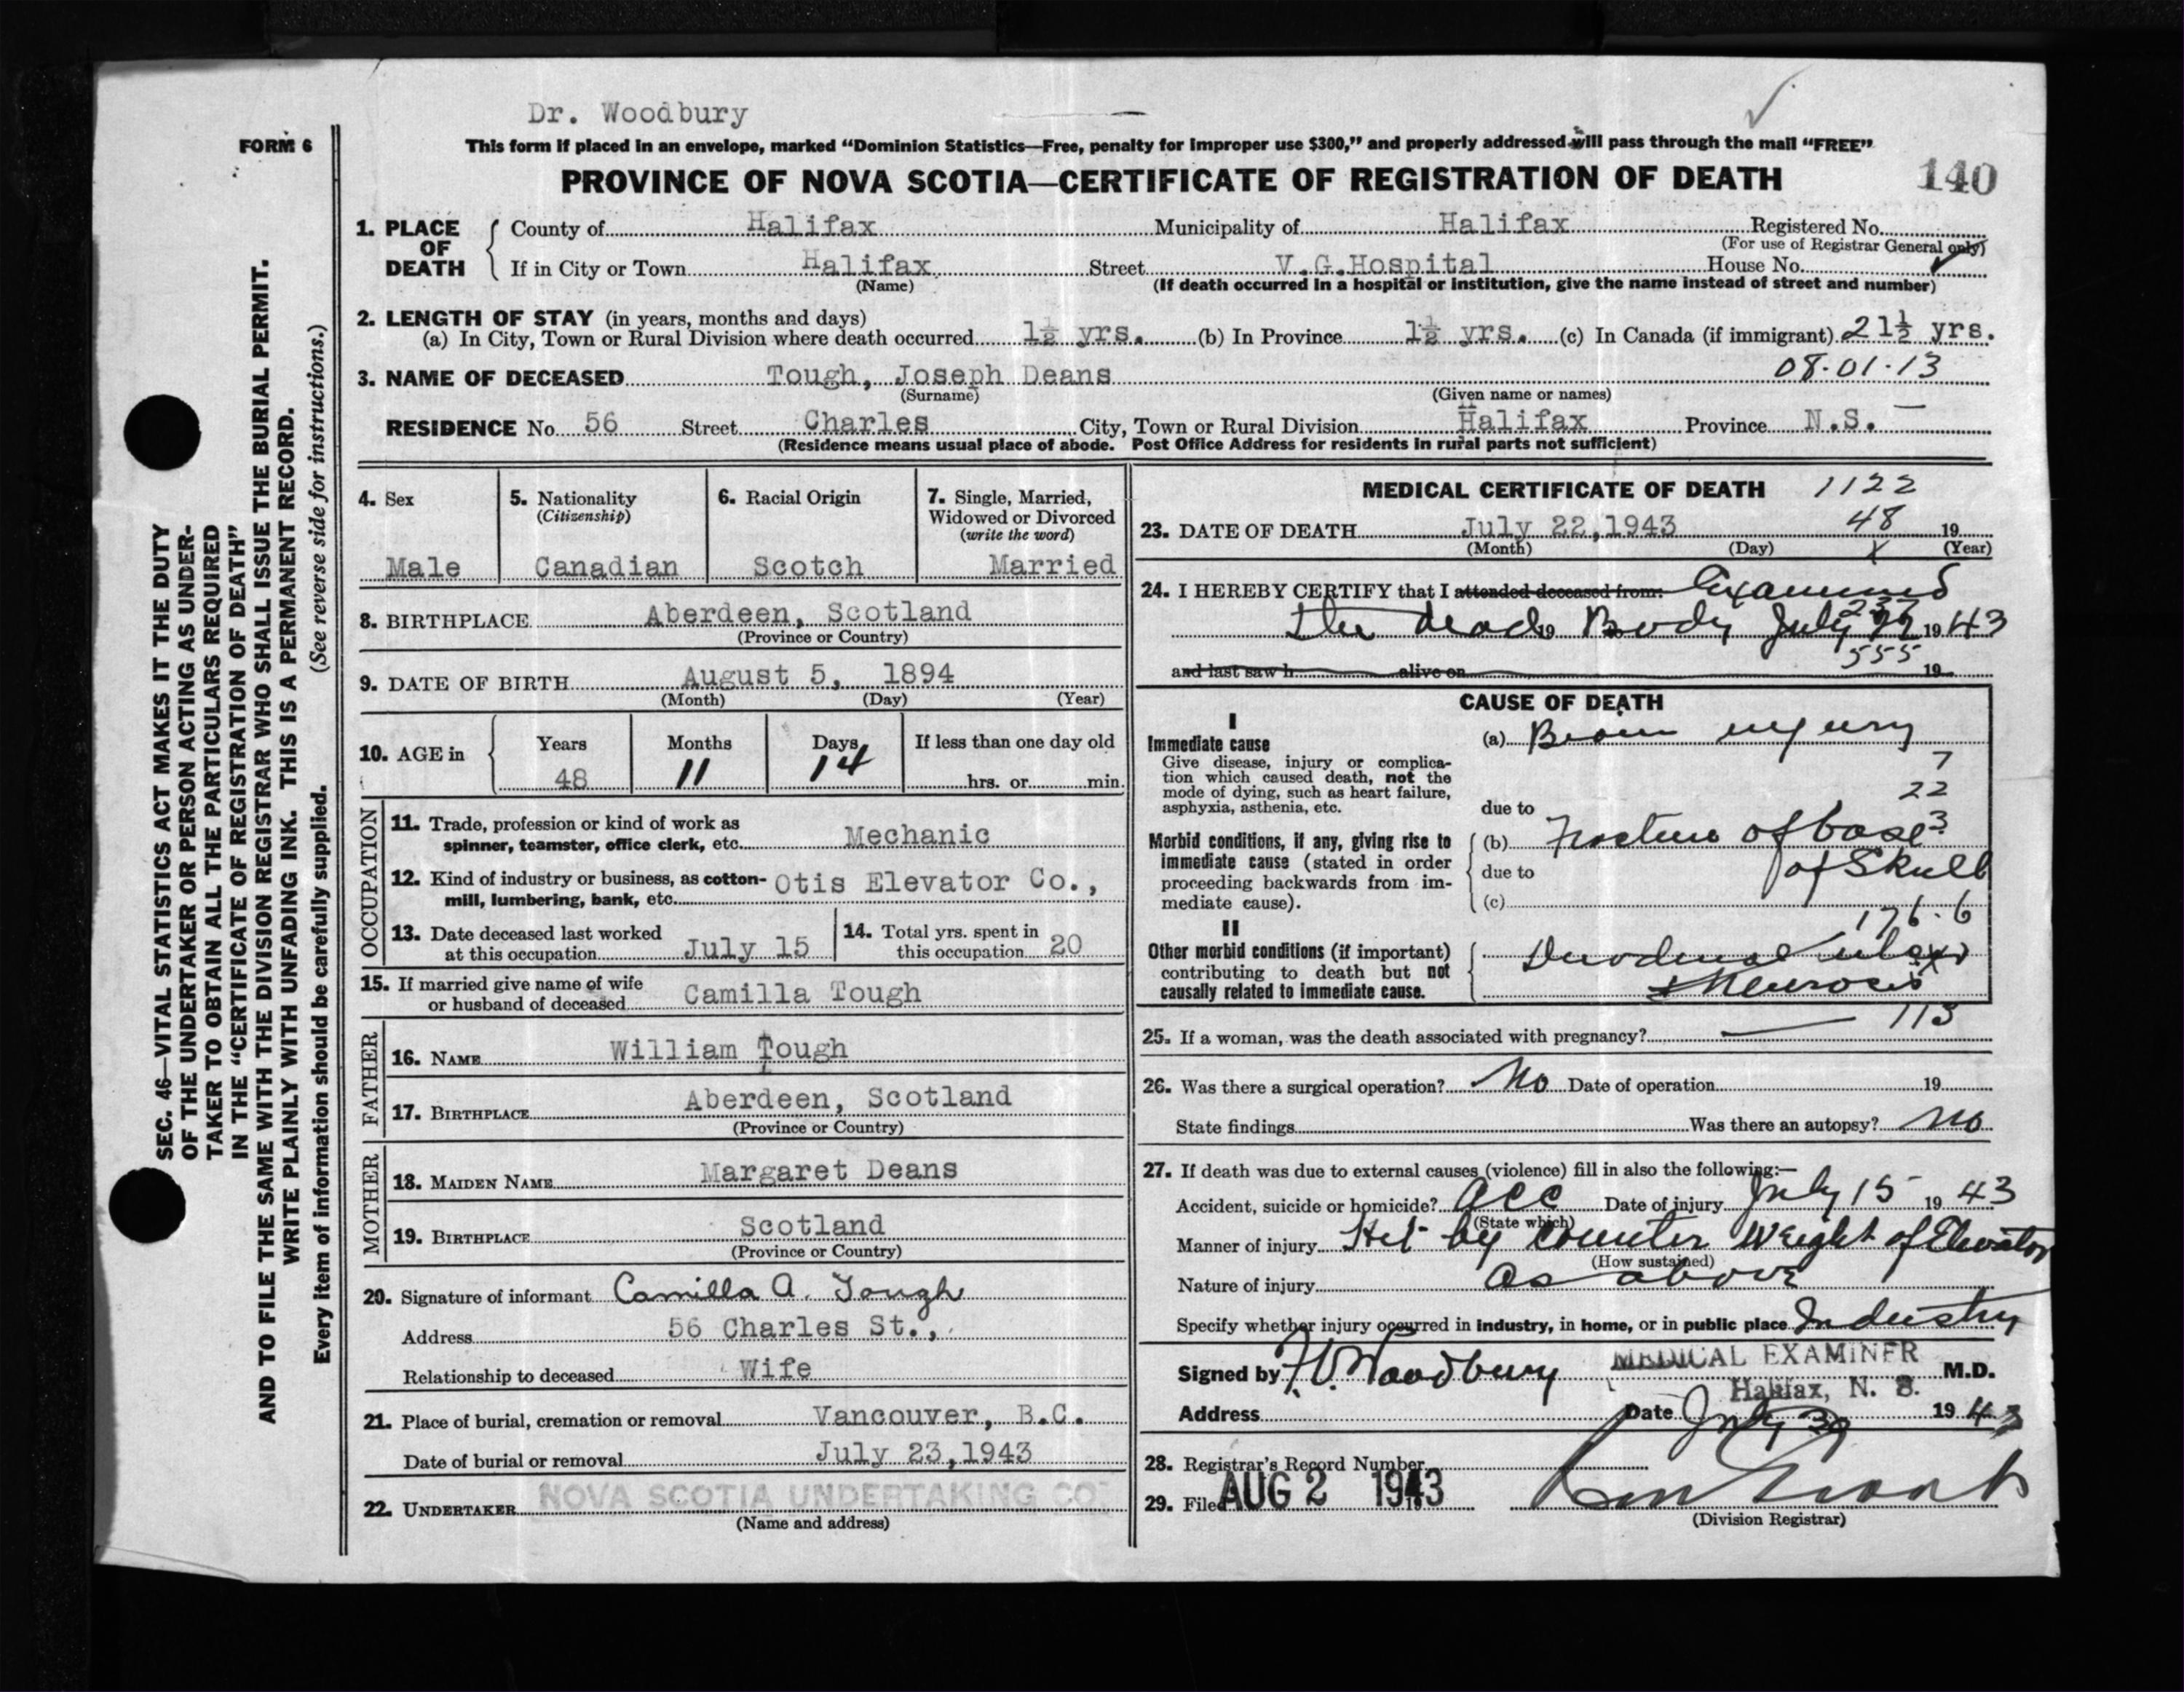 Dr. Woodbury
FORM 6
This form if placed in an envelope, marked “Dominion Statistics—Free, penalty for improper use $300,” and properly addressed will pass through the mail “FREE”
PROVINCE OF NOVA SCOTIA—CERTIFICATE OF REGISTRATION OF DEATH 140
1. PLACE OF DEATH County of Halifax Municipality of Halifax Registered No.
(For use of Registrar General only)
If in City or Town Halifax Street V.G.Hospital House No.
(Name) (If death occurred in a hospital or institution, give the name instead of street and number)
2. LENGTH OF STAY (in years, months and days)
(a) In City, Town or Rural Division where death occurred 1½ yrs. (b) In Province 1½ yrs. (c) In Canada (if immigrant) 21½ yrs.
08·01·13
3. NAME OF DECEASED Tough, Joseph Deans
(Surname) (Given name or names)
RESIDENCE No. 56 Street Charles City, Town or Rural Division Halifax Province N.S.
(Residence means usual place of abode. Post Office Address for residents in rural parts not sufficient)
SEC. 46—VITAL STATISTICS ACT MAKES IT THE DUTY
OF THE UNDERTAKER OR PERSON ACTING AS UNDER-
TAKER TO OBTAIN ALL THE PARTICULARS REQUIRED
IN THE “CERTIFICATE OF REGISTRATION OF DEATH”
AND TO FILE THE SAME WITH THE DIVISION REGISTRAR WHO SHALL ISSUE THE BURIAL PERMIT.
WRITE PLAINLY WITH UNFADING INK. THIS IS A PERMANENT RECORD.
Every item of information should be carefully supplied. (See reverse side for instructions.)
4. Sex
Male
5. Nationality
(Citizenship)
Canadian
6. Racial Origin
Scotch
7. Single, Married,
Widowed or Divorced
(write the word)
Married
8. BIRTHPLACE Aberdeen, Scotland
(Province or Country)
9. DATE OF BIRTH August 5, 1894
(Month) (Day) (Year)
10. AGE in Years Months Days If less than one day old
48 11 14 hrs. or min.
OCCUPATION
11. Trade, profession or kind of work as
spinner, teamster, office clerk, etc. Mechanic
12. Kind of industry or business, as cotton-
mill, lumbering, bank, etc. Otis Elevator Co.,
13. Date deceased last worked
at this occupation July 15
14. Total yrs. spent in
this occupation 20
15. If married give name of wife
or husband of deceased Camilla Tough
FATHER
16. NAME William Tough
17. BIRTHPLACE Aberdeen, Scotland
(Province or Country)
MOTHER
18. MAIDEN NAME Margaret Deans
19. BIRTHPLACE Scotland
(Province or Country)
20. Signature of informant Camilla A. Tough
Address 56 Charles St.,
Relationship to deceased Wife
21. Place of burial, cremation or removal Vancouver, B.C.
Date of burial or removal July 23,1943
22. UNDERTAKER NOVA SCOTIA UNDERTAKING CO
(Name and address)
MEDICAL CERTIFICATE OF DEATH 1122
48
23. DATE OF DEATH July 22,1943 19
(Month) (Day) (Year)
24. I HEREBY CERTIFY that I attended deceased from: Examined
the dead 19 Body July 19 43
555
and last saw h alive on 19
CAUSE OF DEATH
I
Immediate cause
Give disease, injury or complica-
tion which caused death, not the
mode of dying, such as heart failure,
asphyxia, asthenia, etc.
(a) Brain injury
7
22
3
due to
Morbid conditions, if any, giving rise to
immediate cause (stated in order
proceeding backwards from im-
mediate cause).
(b) Fracture of base
due to of Skull
(c)
176·6
II
Other morbid conditions (if important)
contributing to death but not
causally related to immediate cause.
Duodenal ulcer
+ Neurosis
113
25. If a woman, was the death associated with pregnancy?
26. Was there a surgical operation? No Date of operation 19
State findings Was there an autopsy? No
27. If death was due to external causes (violence) fill in also the following:—
Accident, suicide or homicide? acc Date of injury July 15 19 43
(State which)
Manner of injury Hit by Counter Weight of Elevator
(How sustained)
Nature of injury As above
Specify whether injury occurred in industry, in home, or in public place Industry
Signed by Woodbury MEDICAL EXAMINER M.D.
Halifax, N. S.
Address Date July 30 19 43
28. Registrar's Record Number
29. Filed AUG 2 1943
(Division Registrar)